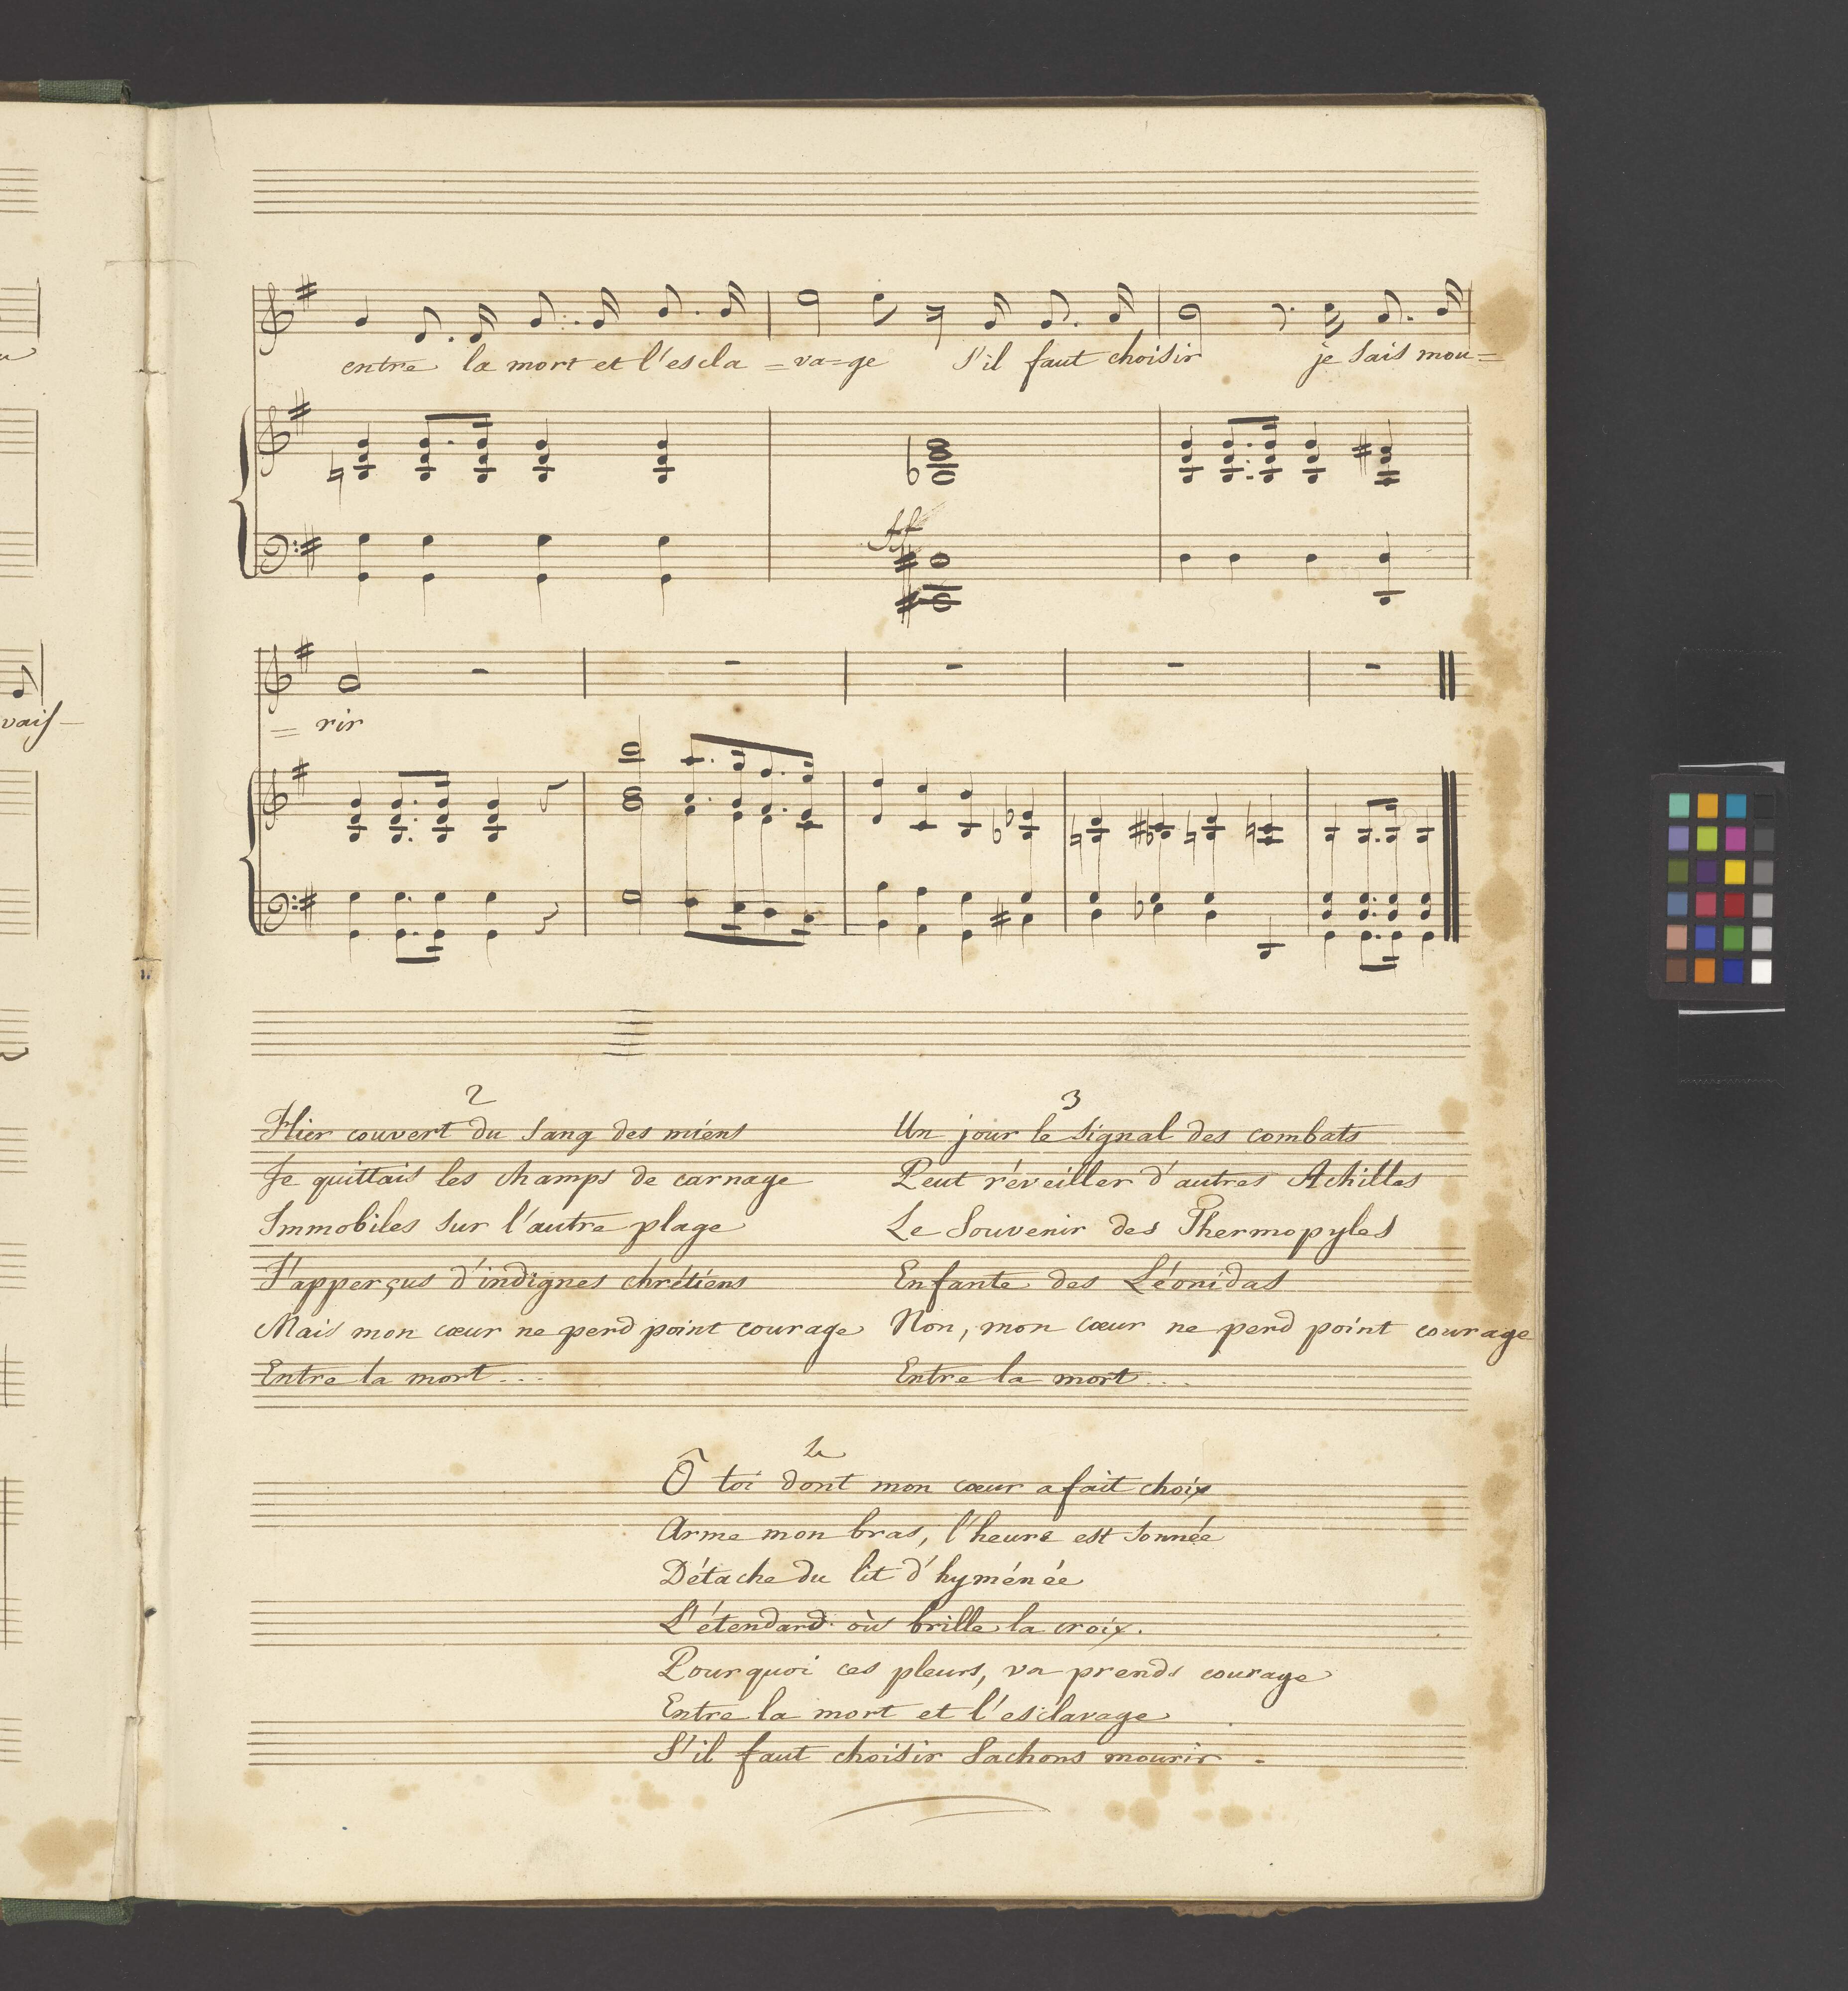 entre la mort et l'escla = va = ge S'il faut choisir je sais mou =
vais
= rir
2
Hier couvert du sang des miens
Je quittais les champs de carnage
Immobiles sur l'autre plage
J'apperçus d'indignes chrétiens
Mais mon cœur ne perd point courage
Entre la mort ...
3
Un jour le signal des combats
Peut réveiller d'autres Achilles
Le Souvenir des Thermopyles
Enfante des Léonidas
Non, mon cœur ne perd point courage
Entre la mort ...
4
Ô toi dont mon cœur a fait choix
Arme mon bras, l'heure est sonnée
Détache du lit d'hyménée
L'étendard où brille la croix.
Pourquoi ces pleurs, va prends courage
Entre la mort et l'esclavage
S'il faut choisir Sachons mourir.